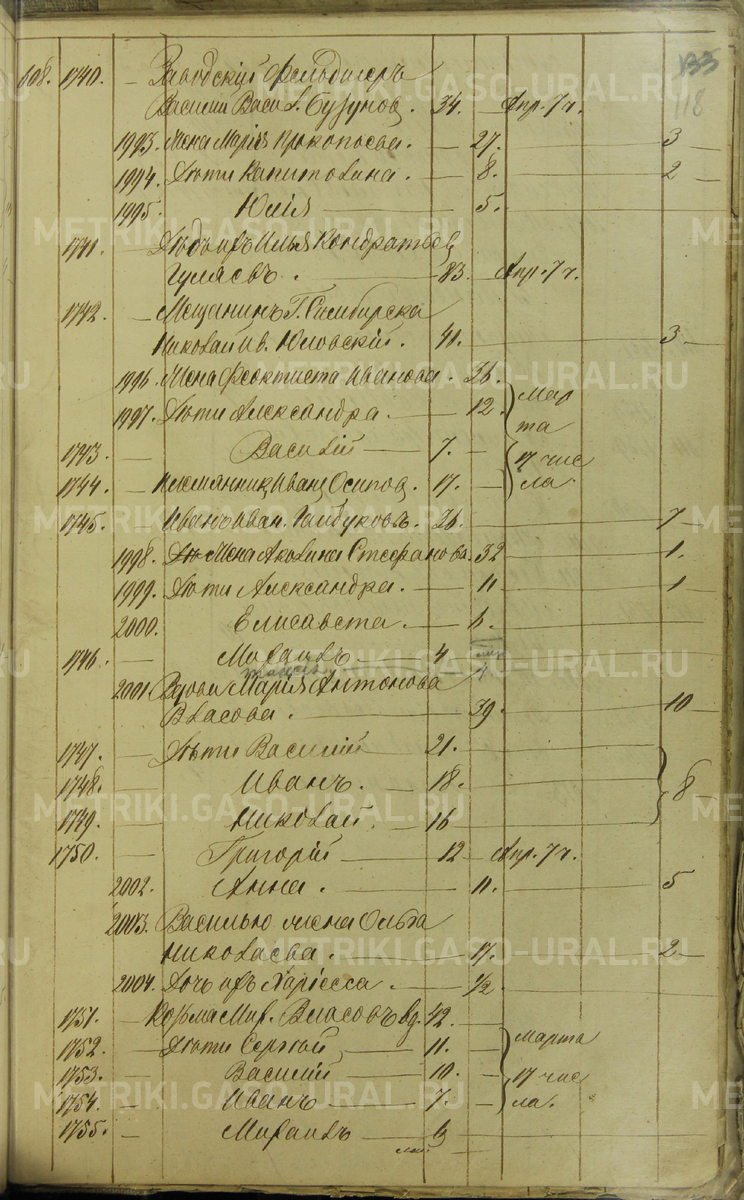 133
118
608. 1740. — Заводскій Фельдшеръ
Василій Васил. Бузунов. 34. — Апр. 7 ч.
1993. Жена Марія Прокопьева. — 27. — 3 —
1994. Дѣти Капитолина. — 8. — 2 —
1995. Юлія — 5.
1741. — Дѣдъ ихъ Илья Кондратьев
Гуляевъ. — 83. Апр. 7 ч.
1742. — Мещанинъ Г. Симбирска
Николай Ив. Юловскій. 41. — 3 —
1996. Жена Феоктиста Иванова. 36.
1997. Дѣти Александра. — 12. Мар
та
1743. — Василій — 7. — 17 чис
1744. — племянник Иванъ Осипов. 17. — ла.
1745. Иванъ Иван. 26. — 7 —
1998. Жена Акулина Стефанова. 32 — 1.
1999. Дѣти Александра. — 11 — 1
2000. Елисавета. — 6.
1746. — Михаилъ — 4
2001. Вдова Марія Антонова
Власова. — 39 — 10 —
1747. — Дѣти Василій 21.
1748. Иванъ. — 18. 8
1749. — Николай. — 16
1750. — Григорій — 12 — Апр. 7 ч.
2002. Анна. — 11. — 5
2003. Василью жена Ольга
Николаева. — 17. — 2 —
2004. Дочь ихъ Лариса. — ½
1751. — Козьма Мих. Власовъ вд. 42. —
1752. — Дѣти Сергѣй — 11. — Марта
1753. — Василій — 10. — 17 чис
1754. — Иванъ — 7. — ла.
1755. — Михаилъ — 9
METRIKI.GASO-URAL.RU